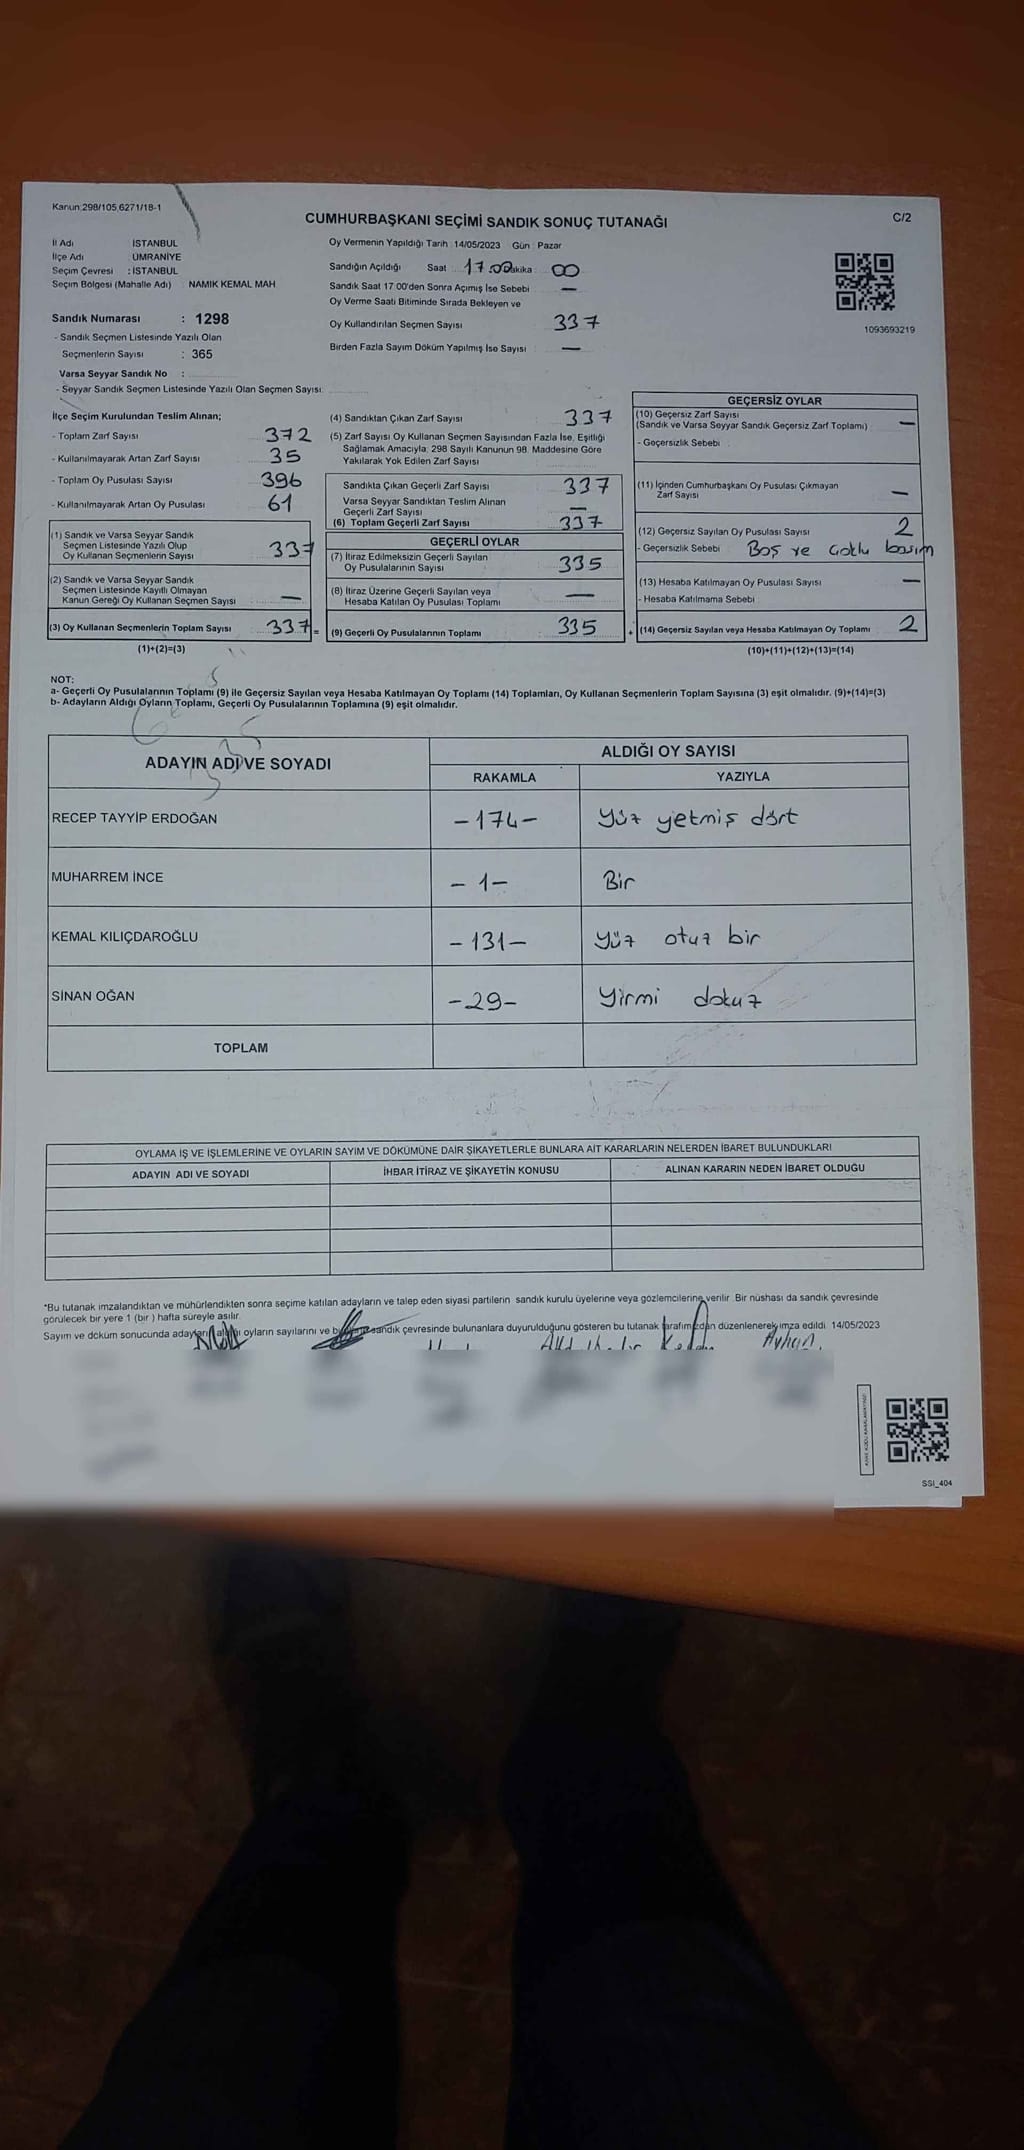 Kanun:298/105,6271/18-1
CUMHURBAŞKANI SEÇİMİ SANDIK SONUÇ TUTANAĞI
C/2
İl Adı İSTANBUL
İlçe Adı ÜMRANİYE
Seçim Çevresi : İSTANBUL
Seçim Bölgesi (Mahalle Adı) NAMIK KEMAL MAH
Sandık Numarası : 1298
- Sandık Seçmen Listesinde Yazılı Olan
Seçmenlerin Sayısı : 365
Varsa Seyyar Sandık No :
- Seyyar Sandık Seçmen Listesinde Yazılı Olan Seçmen Sayısı:
Oy Vermenin Yapıldığı Tarih 14/05/2023 Gün Pazar
Sandığın Açıldığı Saat 17:00 Dakika 00
Sandık Saat 17 00'den Sonra Açımış İse Sebebi —
Oy Verme Saati Bitiminde Sırada Bekleyen ve
Oy Kullandırılan Seçmen Sayısı 337
Birden Fazla Sayım Döküm Yapılmış İse Sayısı —
1093693219
İlçe Seçim Kurulundan Teslim Alınan;
- Toplam Zarf Sayısı 372
- Kullanılmayarak Artan Zarf Sayısı 35
- Toplam Oy Pusulası Sayısı 396
- Kullanılmayarak Artan Oy Pusulası 61
(1) Sandık ve Varsa Seyyar Sandık
Seçmen Listesinde Yazılı Olup
Oy Kullanan Seçmenlerin Sayısı 337
(2) Sandık ve Varsa Seyyar Sandık
Seçmen Listesinde Kayıtlı Olmayan
Kanun Gereği Oy Kullanan Seçmen Sayısı —
(3) Oy Kullanan Seçmenlerin Toplam Sayısı 337 =
(1)+(2)=(3)
(4) Sandıktan Çıkan Zarf Sayısı 337
(5) Zarf Sayısı Oy Kullanan Seçmen Sayısından Fazla İse, Eşitliği
Sağlamak Amacıyla; 298 Sayılı Kanunun 98. Maddesine Göre
Yakılarak Yok Edilen Zarf Sayısı
Sandıkta Çıkan Geçerli Zarf Sayısı 337
Varsa Seyyar Sandıktan Teslim Alınan
Geçerli Zarf Sayısı —
(6) Toplam Geçerli Zarf Sayısı 337
GEÇERLİ OYLAR
(7) İtiraz Edilmeksizin Geçerli Sayılan
Oy Pusulalarının Sayısı 335
(8) İtiraz Üzerine Geçerli Sayılan veya
Hesaba Katılan Oy Pusulası Toplamı —
(9) Geçerli Oy Pusulalarının Toplamı 335 +
GEÇERSİZ OYLAR
(10) Geçersiz Zarf Sayısı
(Sandık ve Varsa Seyyar Sandık Geçersiz Zarf Toplamı) —
- Geçersizlik Sebebi :
(11) İçinden Cumhurbaşkanı Oy Pusulası Çıkmayan
Zarf Sayısı —
(12) Geçersiz Sayılan Oy Pusulası Sayısı 2
- Geçersizlik Sebebi Boş ve çoklu basım
(13) Hesaba Katılmayan Oy Pusulası Sayısı —
- Hesaba Katılmama Sebebi
(14) Geçersiz Sayılan veya Hesaba Katılmayan Oy Toplamı 2
(10)+(11)+(12)+(13)=(14)
NOT:
a- Geçerli Oy Pusulalarının Toplamı (9) ile Geçersiz Sayılan veya Hesaba Katılmayan Oy Toplamı (14) Toplamları, Oy Kullanan Seçmenlerin Toplam Sayısına (3) eşit olmalıdır. (9)+(14)=(3)
b- Adayların Aldığı Oyların Toplamı, Geçerli Oy Pusulalarının Toplamına (9) eşit olmalıdır.
ADAYIN ADI VE SOYADI
ALDIĞI OY SAYISI
RAKAMLA YAZIYLA
RECEP TAYYİP ERDOĞAN -174- Yüz yetmiş dört
MUHARREM İNCE -1- Bir
KEMAL KILIÇDAROĞLU -131- Yüz otuz bir
SİNAN OĞAN -29- Yirmi dokuz
TOPLAM
OYLAMA İŞ VE İŞLEMLERİNE VE OYLARIN SAYIM VE DÖKÜMÜNE DAİR ŞİKAYETLERLE BUNLARA AİT KARARLARIN NELERDEN İBARET BULUNDUKLARI
ADAYIN ADI VE SOYADI İHBAR İTİRAZ VE ŞİKAYETİN KONUSU ALINAN KARARIN NEDEN İBARET OLDUĞU
*Bu tutanak imzalandıktan ve mühürlendikten sonra seçime katılan adayların ve talep eden siyasi partilerin sandık kurulu üyelerine veya gözlemcilerine verilir Bir nüshası da sandık çevresinde
görülecek bir yere 1 (bir ) hafta süreyle asılır.
Sayım ve döküm sonucunda adayların aldığı oyların sayılarını ve sandık çevresinde bulunanlara duyurulduğunu gösteren bu tutanak tarafımızdan düzenlenerek imza edildi 14/05/2023
Ayhan
SSI_404